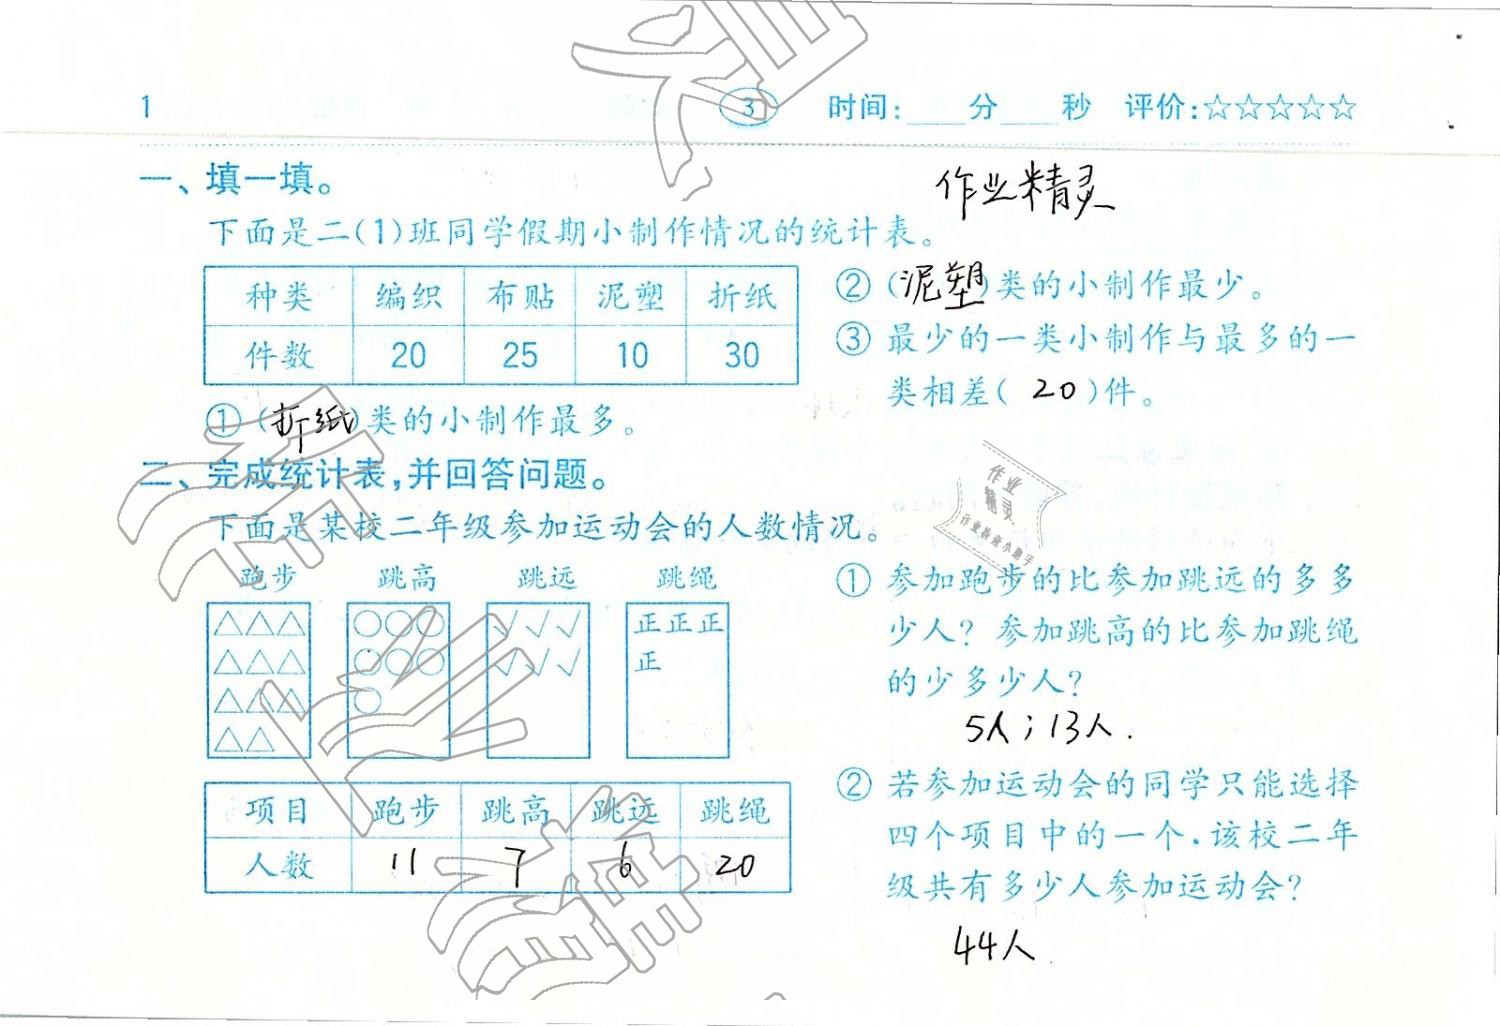 1 3 时间:____分____秒 评价:☆☆☆☆☆
一、填一填。
作业精灵
下面是二(1)班同学假期小制作情况的统计表。
种类 编织 布贴 泥塑 折纸
件数 20 25 10 30
①(折纸)类的小制作最多。
②(泥塑)类的小制作最少。
③最少的一类小制作与最多的一
类相差( 20 )件。
二、完成统计表,并回答问题。
下面是某校二年级参加运动会的人数情况。
跑步 跳高 跳远 跳绳
△△△ ○○○ √√√ 正正正
△△△ ○○○ √√√ 正
△△△ ○
△△
项目 跑步 跳高 跳远 跳绳
人数 11 7 6 20
①参加跑步的比参加跳远的多多
少人?参加跳高的比参加跳绳
的少多少人?
5人;13人.
②若参加运动会的同学只能选择
四个项目中的一个,该校二年
级共有多少人参加运动会?
44人
作业
精灵
作业检查小助手